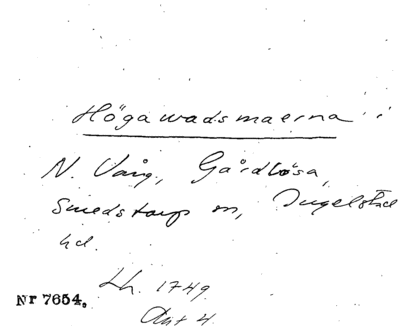 Högawadsmaerna
N. Vång, Gårdlösa,
Smedstorp sn, Ingelstad
hd.
Lh. 1749
Akt 4
Nr 7654.